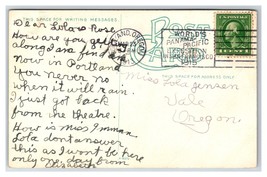 THIS SPACE FOR WRITING MESSAGES
POST
Dear Lola Rose
How are you getting
along. I am fine
Now in Portland
You never no
when it will rain.
I just got back
from the theatre.
How is Miss Inman.
Lola dont answer
this as I wont be here
only one day from
Elizabeth
PORTLAND, OREGON
WORLD'S
PANAMA PACIFIC
EXPOSITION
1915
THIS SPACE FOR ADDRESS ONLY
Miss Lola Jensen
Vale
Oregon.